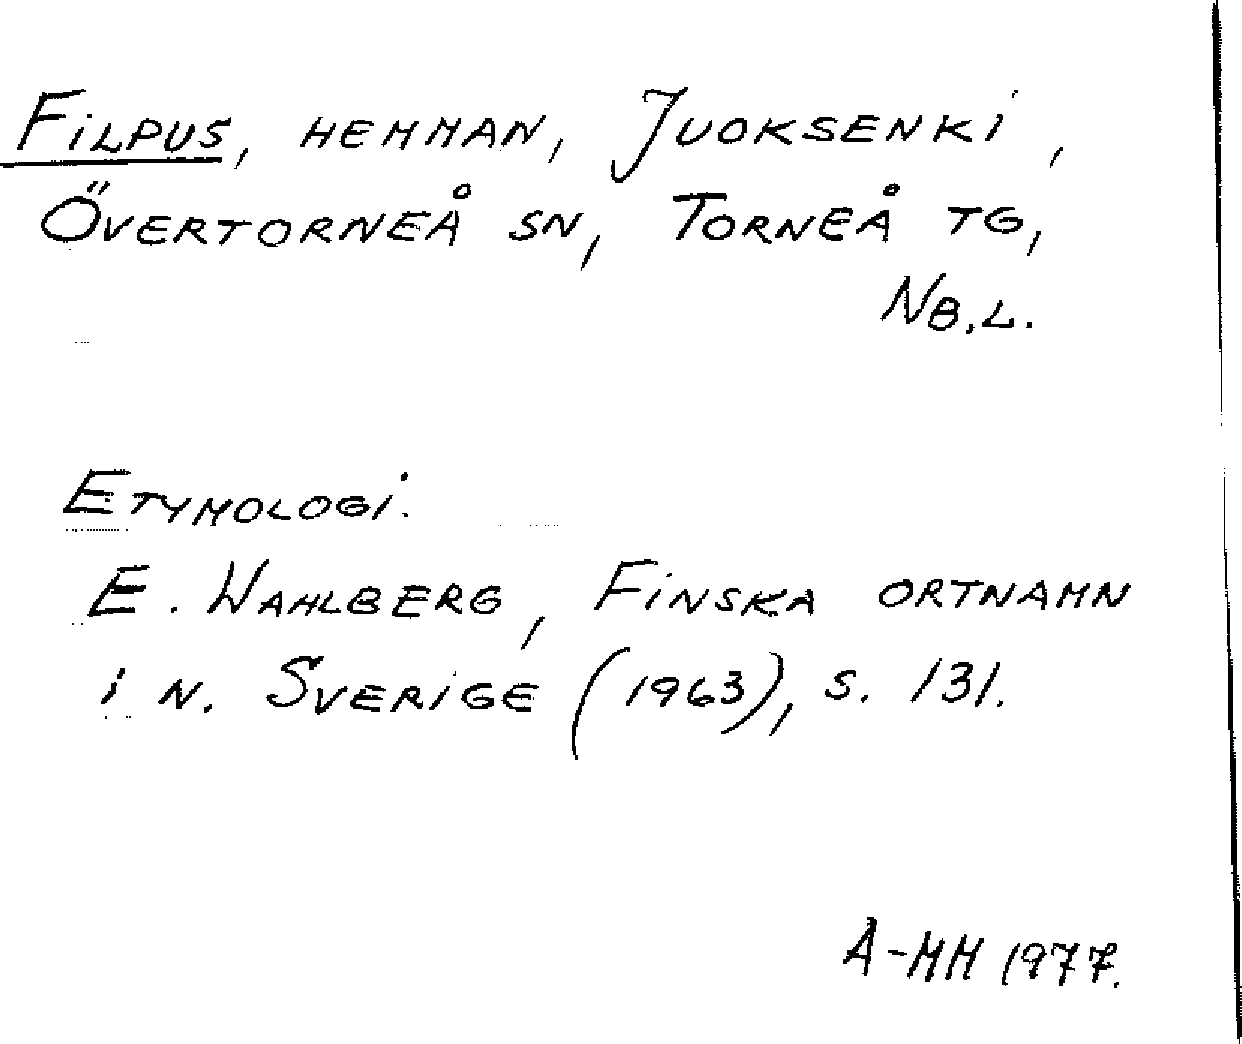 Filpus, hemman, Juoksenki,
Övertorneå sn, Torneå tg,
Nb.l.
Etymologi.
E. Wahlberg, Finska ortnamn
i n. Sverige (1963), s. 131.
A-MM 1977.